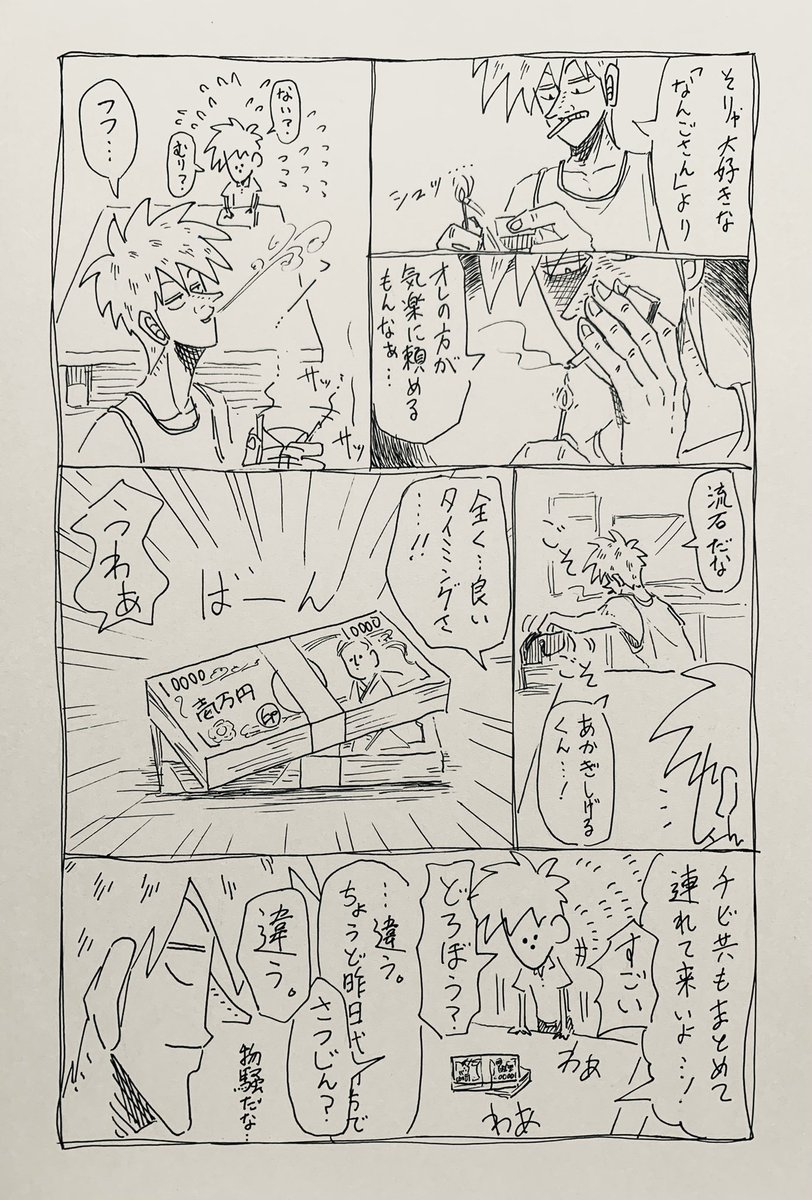 そりゃ大好きな
「なんごさん」より
シュッ…
オレの方が
気楽に頼める
もんなぁ…
ない？
むり？
フフ…
サッ…
サッ
流石だな
ごそ
ごそ
あかぎしげる
くん…！
全く…良い
タイミングさ
……!!
ばーん
10000
10000
壱万円
うわぁ
チビ共もまとめて
連れて来いよ…！
すごい
わぁ
わあ
どろぼう？
…違う。
ちょうど昨日代
で
さつじん？
違う。
物騒だな…